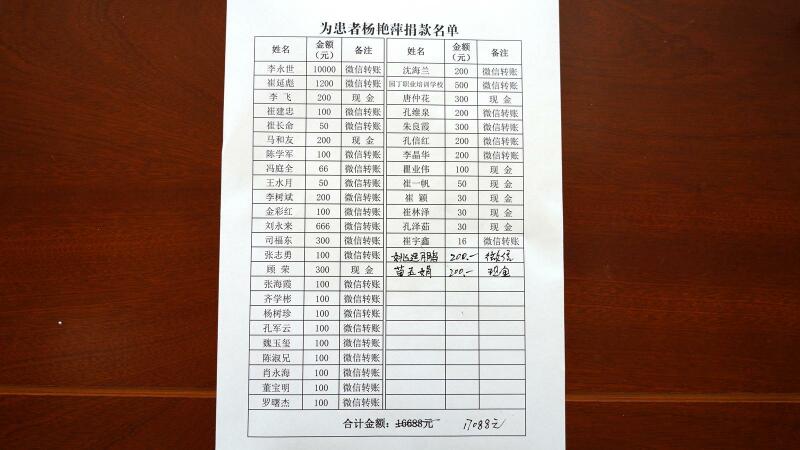 为患者杨艳萍捐款名单
姓名 金额（元） 备注 姓名 金额（元） 备注
李永世 10000 微信转账 沈海兰 200 微信转账
崔延彪 1200 微信转账 园丁职业培训学校 500 微信转账
李飞 200 现金 唐仲花 300 现金
崔建忠 100 微信转账 孔维泉 200 微信转账
崔长命 50 微信转账 朱良霞 300 微信转账
马和友 200 现金 孔信红 200 微信转账
陈学军 100 微信转账 李晶华 200 微信转账
冯庭全 66 微信转账 瞿业伟 100 现金
王水月 50 微信转账 崔一帆 50 现金
李树斌 200 微信转账 崔颖 30 现金
金彩红 100 微信转账 崔林泽 30 现金
刘永来 666 微信转账 孔泽茹 30 现金
司福东 300 微信转账 崔宇鑫 16 微信转账
张志勇 100 微信转账 200.- 微信
顾荣 300 现金 苗五娟 200.- 现金
张海霞 100 微信转账
齐学彬 100 微信转账
杨树珍 100 微信转账
孔军云 100 微信转账
魏玉玺 100 微信转账
陈淑兄 100 微信转账
肖永海 100 微信转账
董宝明 100 微信转账
罗曙杰 100 微信转账
合计金额：16688元 17088元